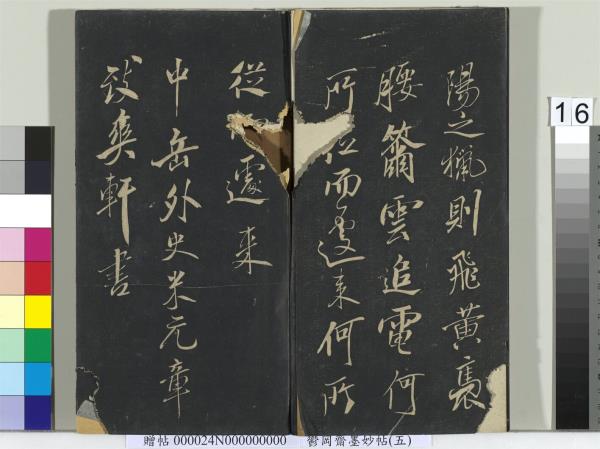 陽之獵則飛黃褭
腰籋雲追電何
所從而遽来何所
從遽来
中岳外史米元章
致爽軒書
16
贈帖 000024N000000000 鬱岡齋墨妙帖(五)